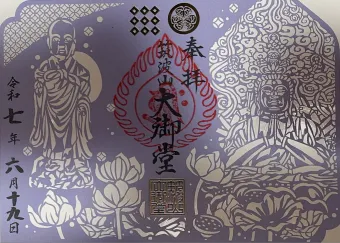 奉拝
筑波山
大御堂
令和七年六月十九日